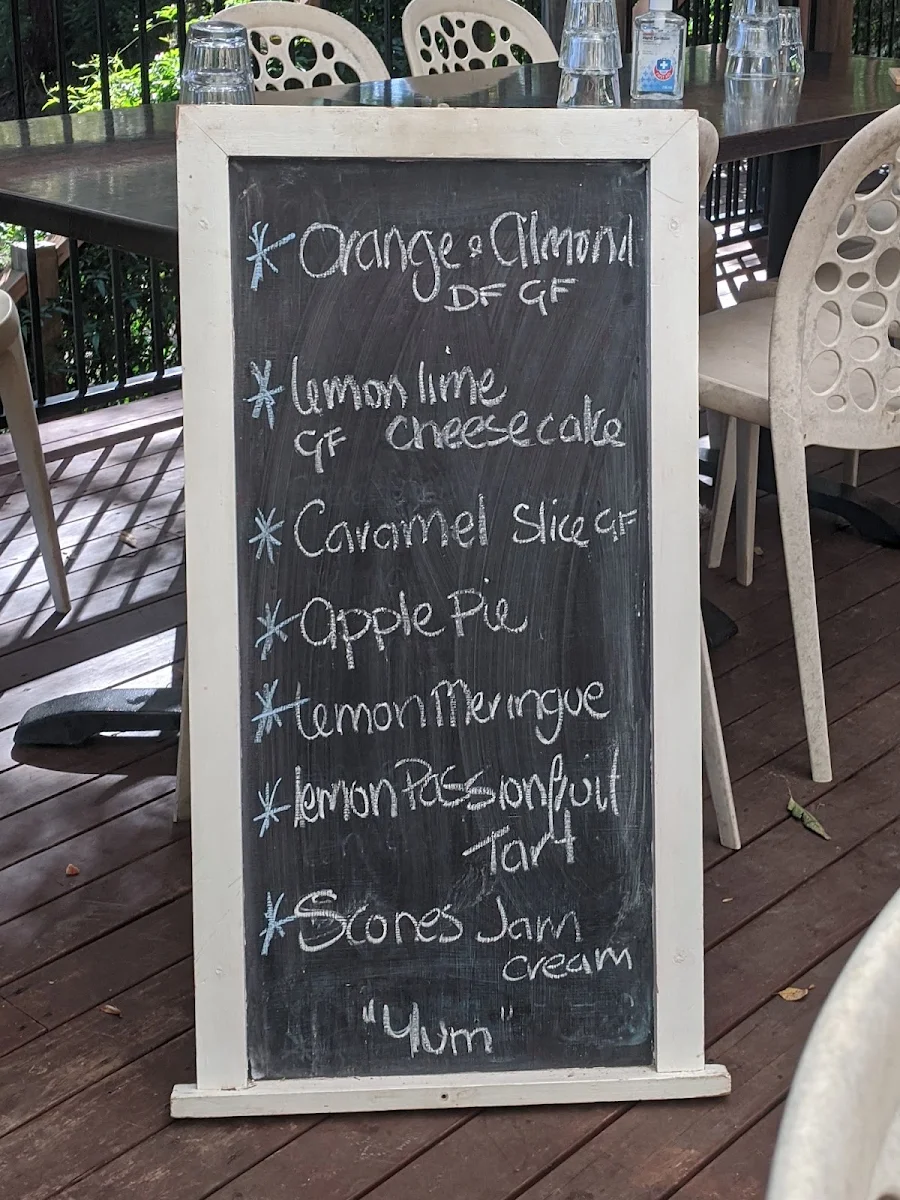 * Orange & Almond
DF GF
* lemon lime
GF cheesecake
* Caramel Slice GF
* Apple Pie
* Lemon Meringue
* lemon Passionfruit
Tart
* Scones Jam
cream
"Yum"